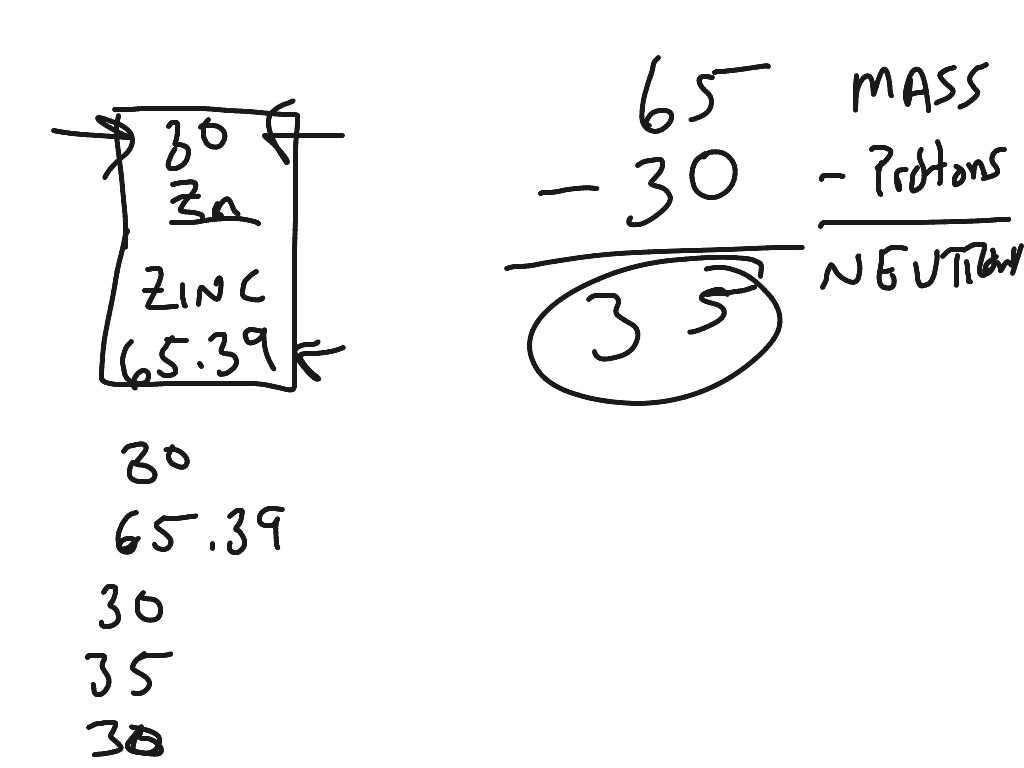 30
Zn
ZINC
65.39
30
65.39
30
35
30
65 MASS
- 30 - Protons
35 NEUTRONS